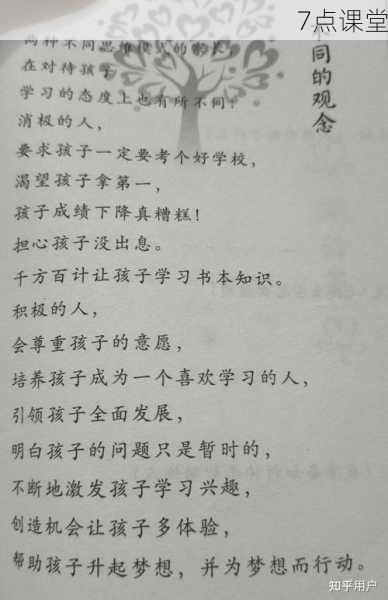 7点课堂
不同的观念
两种不同思维模式的家长，
在对待孩子
学习的态度上也有所不同！
消极的人，
要求孩子一定要考个好学校，
渴望孩子拿第一，
孩子成绩下降真糟糕！
担心孩子没出息。
千方百计让孩子学习书本知识。
积极的人，
会尊重孩子的意愿，
培养孩子成为一个喜欢学习的人，
引领孩子全面发展，
明白孩子的问题只是暂时的，
不断地激发孩子学习兴趣，
创造机会让孩子多体验，
帮助孩子升起梦想，并为梦想而行动。
知乎用户